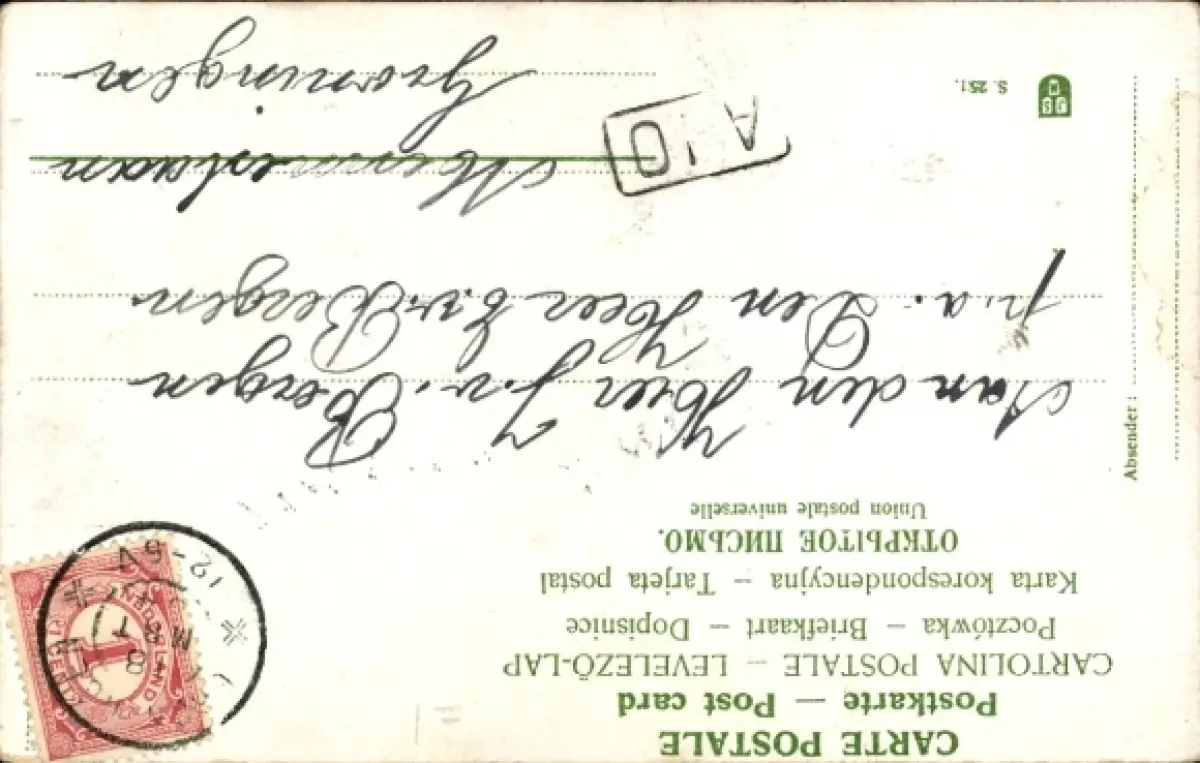 CARTE POSTALE
Postkarte — Post card
CARTOLINA POSTALE — LEVELEZŐ-LAP
Pocztówka — Briefkaart — Dopisnice
Karta korespondencyjna — Tarjeta postal
ОТКРЫТОЕ ПИСЬМО.
Union postale universelle
NEDERLAND
1
12-6V
Absender:
Aan den Heer J. v. Bergen
p.a. Den Heer E. v. Bergen
Groningen
A'O
S. 251.